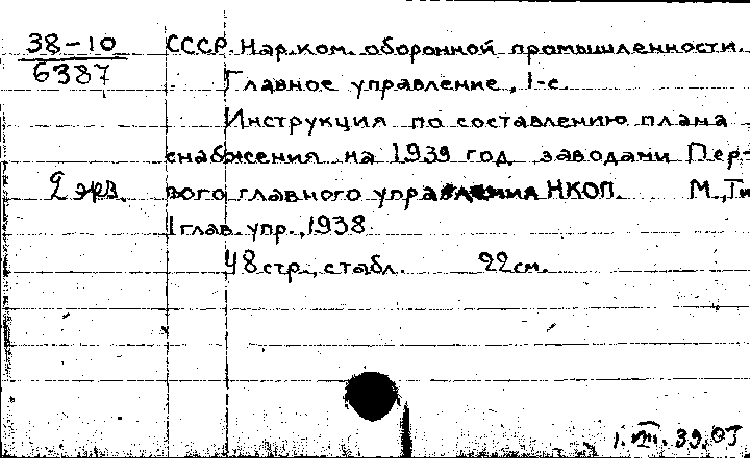 38-10
6387
2 экз.
СССР. Нар.ком. оборонной промышленности.
Главное управление, 1-е.
Инструкция по составлению плана
снабжения на 1939 год заводами Пер-
вого главного управления НКОП. М., Ти
1 глав. упр., 1938.
48 стр., с табл. 22 см.
1.VIII.39.